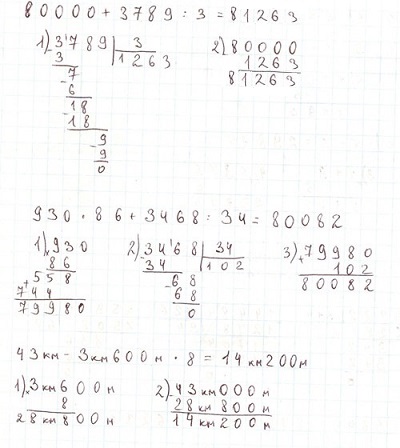 80000 + 3789 : 3 = 81263
1) 3789 | 3
3 | 1263
- 7
6
18
- 18
- 9
9
0
2) 80000
1263
81263
930 · 86 + 3468 : 34 = 80082
1) 930
86
558
+ 744
79980
2) 3468 | 34
- 34 | 102
- 68
68
0
3) 79980
+ 102
80082
43 км - 3 км 600 м · 8 = 14 км 200 м
1) 3 км 600 м
8
28 км 800 м
2) 43 км 000 м
28 км 800 м
14 км 200 м